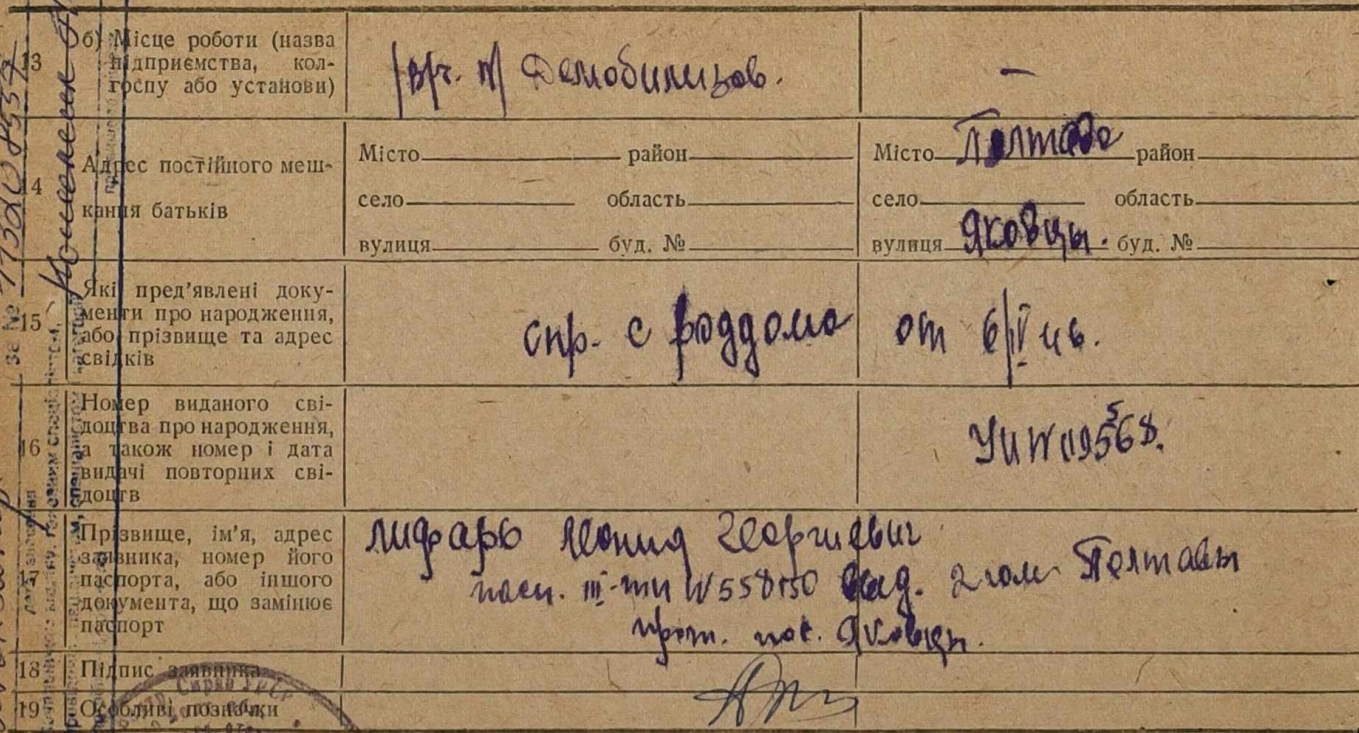 13 б) Місце роботи (назва
підприємства, кол-
госпу або установи)
в/ч. п/ Демобилизов. —
14 Адрес постійного меш-
кання батьків
Місто район Місто Полтава район
село область село область
вулиця буд. № вулиця Яковцы. буд. №
15 Які пред'явлені доку-
менти про народження,
або прізвище та адрес
свідків
спр. с роддома от 6/IV 46.
16 Номер виданого сві-
доцтва про народження,
а також номер і дата
видачі повторних сві-
доцтв
17 Прізвище, ім'я, адрес
заявника, номер його
паспорта, або іншого
документа, що замінює
паспорт
Лифарь Леонид Георгиевич
пасп. III-ТИ N 558150 выд. 2 гом Полтавы
прож. пос. Яковцы.
18 Підпис заявника
19 Особливі позначки